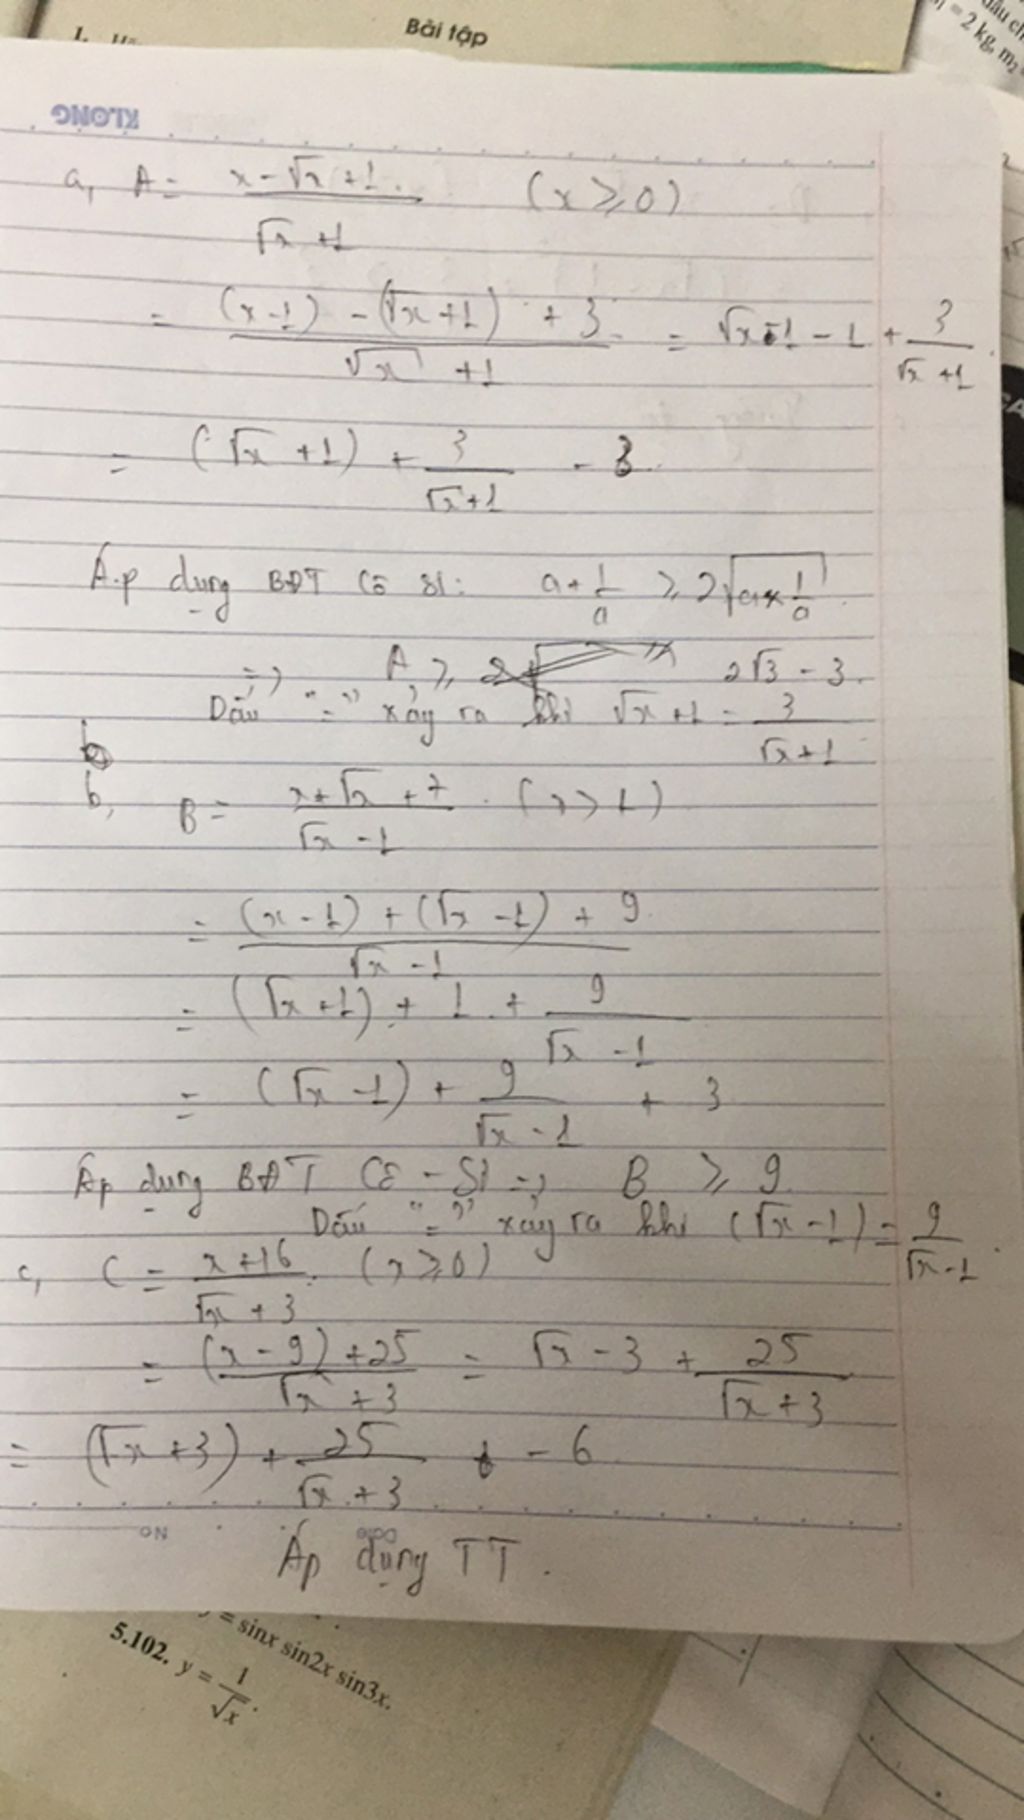 Bài tập
1.
= 2 kg, m₂
KLONG
a, A = (x - √x + 1)/(√x + 1) (x ≥ 0)
= ((x-1) - (√x+1) + 3)/(√x + 1) = √x - 1 - 1 + 3/(√x + 1)
= (√x + 1) + 3/(√x+1) - 3
Áp dụng BĐT Cô Si: a + 1/a ≥ 2√(a×1/a)
=> A ≥ 2√3 - 3.
Dấu "=" xảy ra khi √x + 1 = 3/(√x+1)
b, B = (x + √x + 7)/(√x - 1) . (x > 1)
= ((x-1) + (√x - 1) + 9)/(√x - 1)
= (√x + 1) + 1 + 9/(√x - 1)
= (√x - 1) + 9/(√x - 1) + 3
Áp dụng BĐT Cô - Si => B ≥ 9
Dấu "=" xảy ra khi (√x - 1) = 9/(√x - 1)
c, C = (x+16)/(√x + 3) . (x ≥ 0)
= ((x - 9) + 25)/(√x + 3) = √x - 3 + 25/(√x + 3)
= (√x + 3) + 25/(√x + 3) - 6
No Date
Áp dụng TT.
y = sinx sin2x sin3x.
5.102. y = 1/√x.